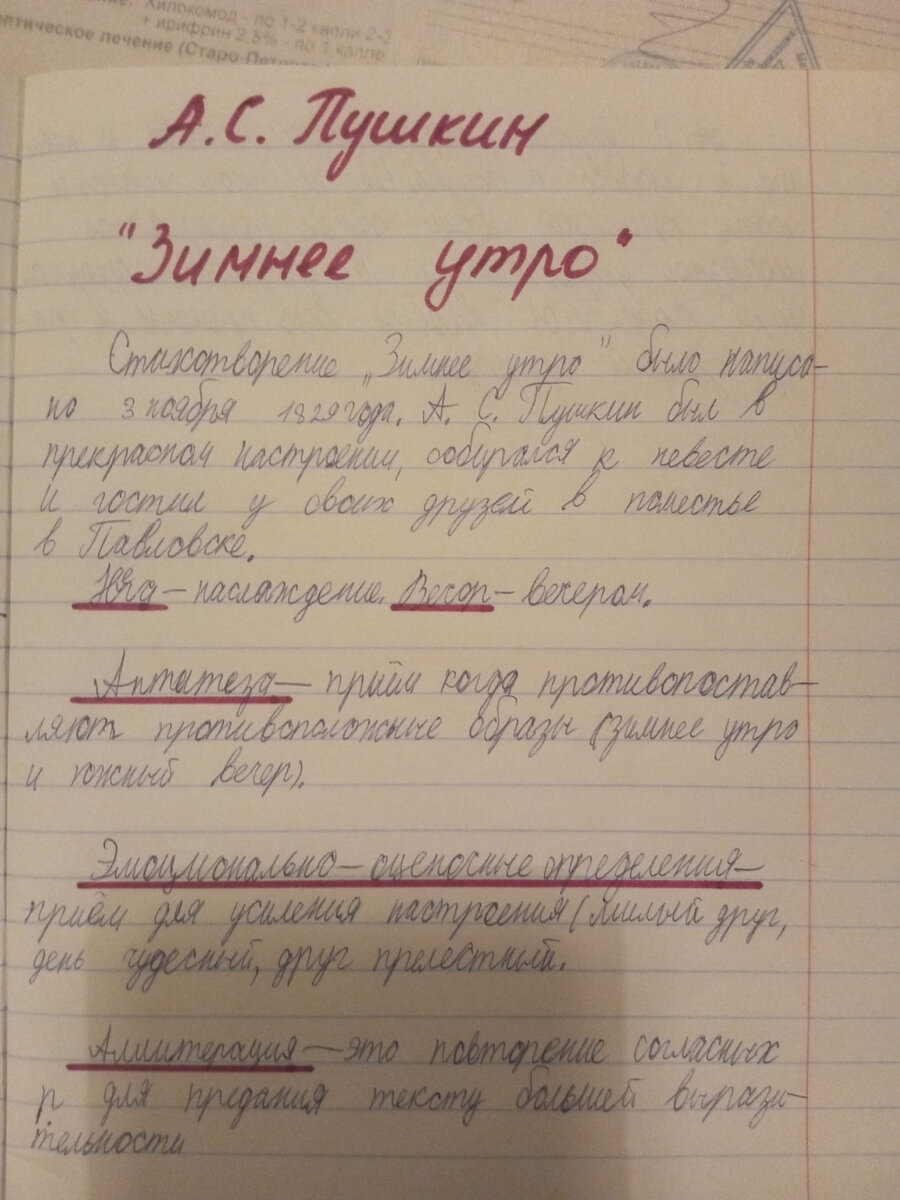 Хилокомод - по 1-2 капли 2-3
+ ирифрин 2.5% - по 1 капле
птическое лечение (Старо-Петерго
А.С. Пушкин
"Зимнее утро"
Стихотворение „Зимнее утро" было написа-
но 3 ноября 1829 года. А. С. Пушкин был в
прекрасном настроении, собирался к невесте
и гостил у своих друзей в поместье
в Павловске.
Нега – наслаждение. Вечор – вечером.
Антитеза – приём когда противопостав-
ляют противоположные образы (зимнее утро
и южный вечер).
Эмоционально – оценосные определения –
приём для усиления настроения (милый друг,
день чудесный, друг прелестный.
Алиитерация – это повторение согласных
р для предания тексту большей вырази-
тельности